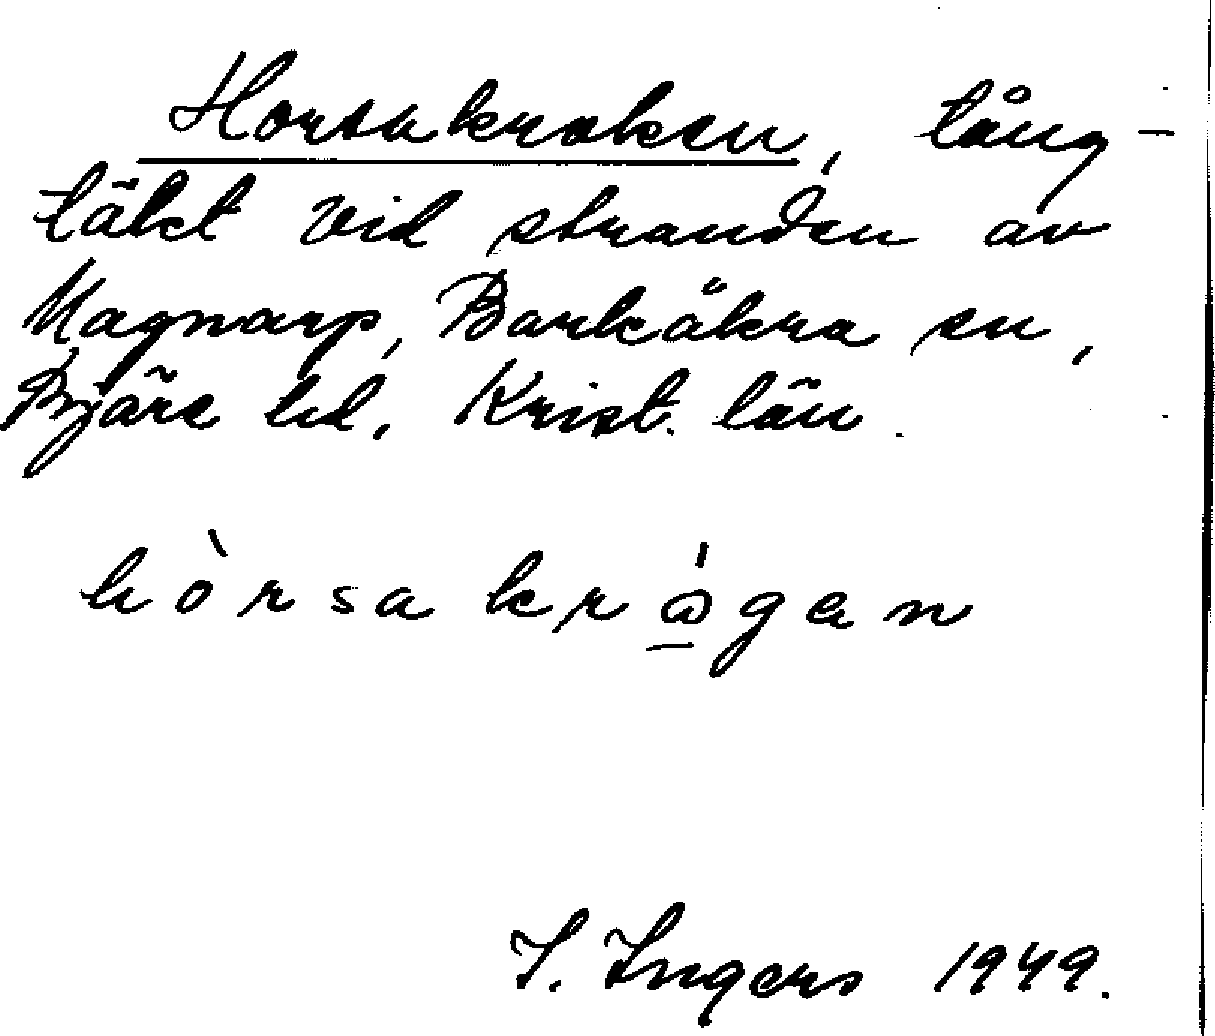 Horsakroken, tång-
täkt vid stranden av
Magnarp, Barkåkra sn,
Bjäre hd, Krist. län.
hòrsakrǫ́gen
I. Ingers 1949.